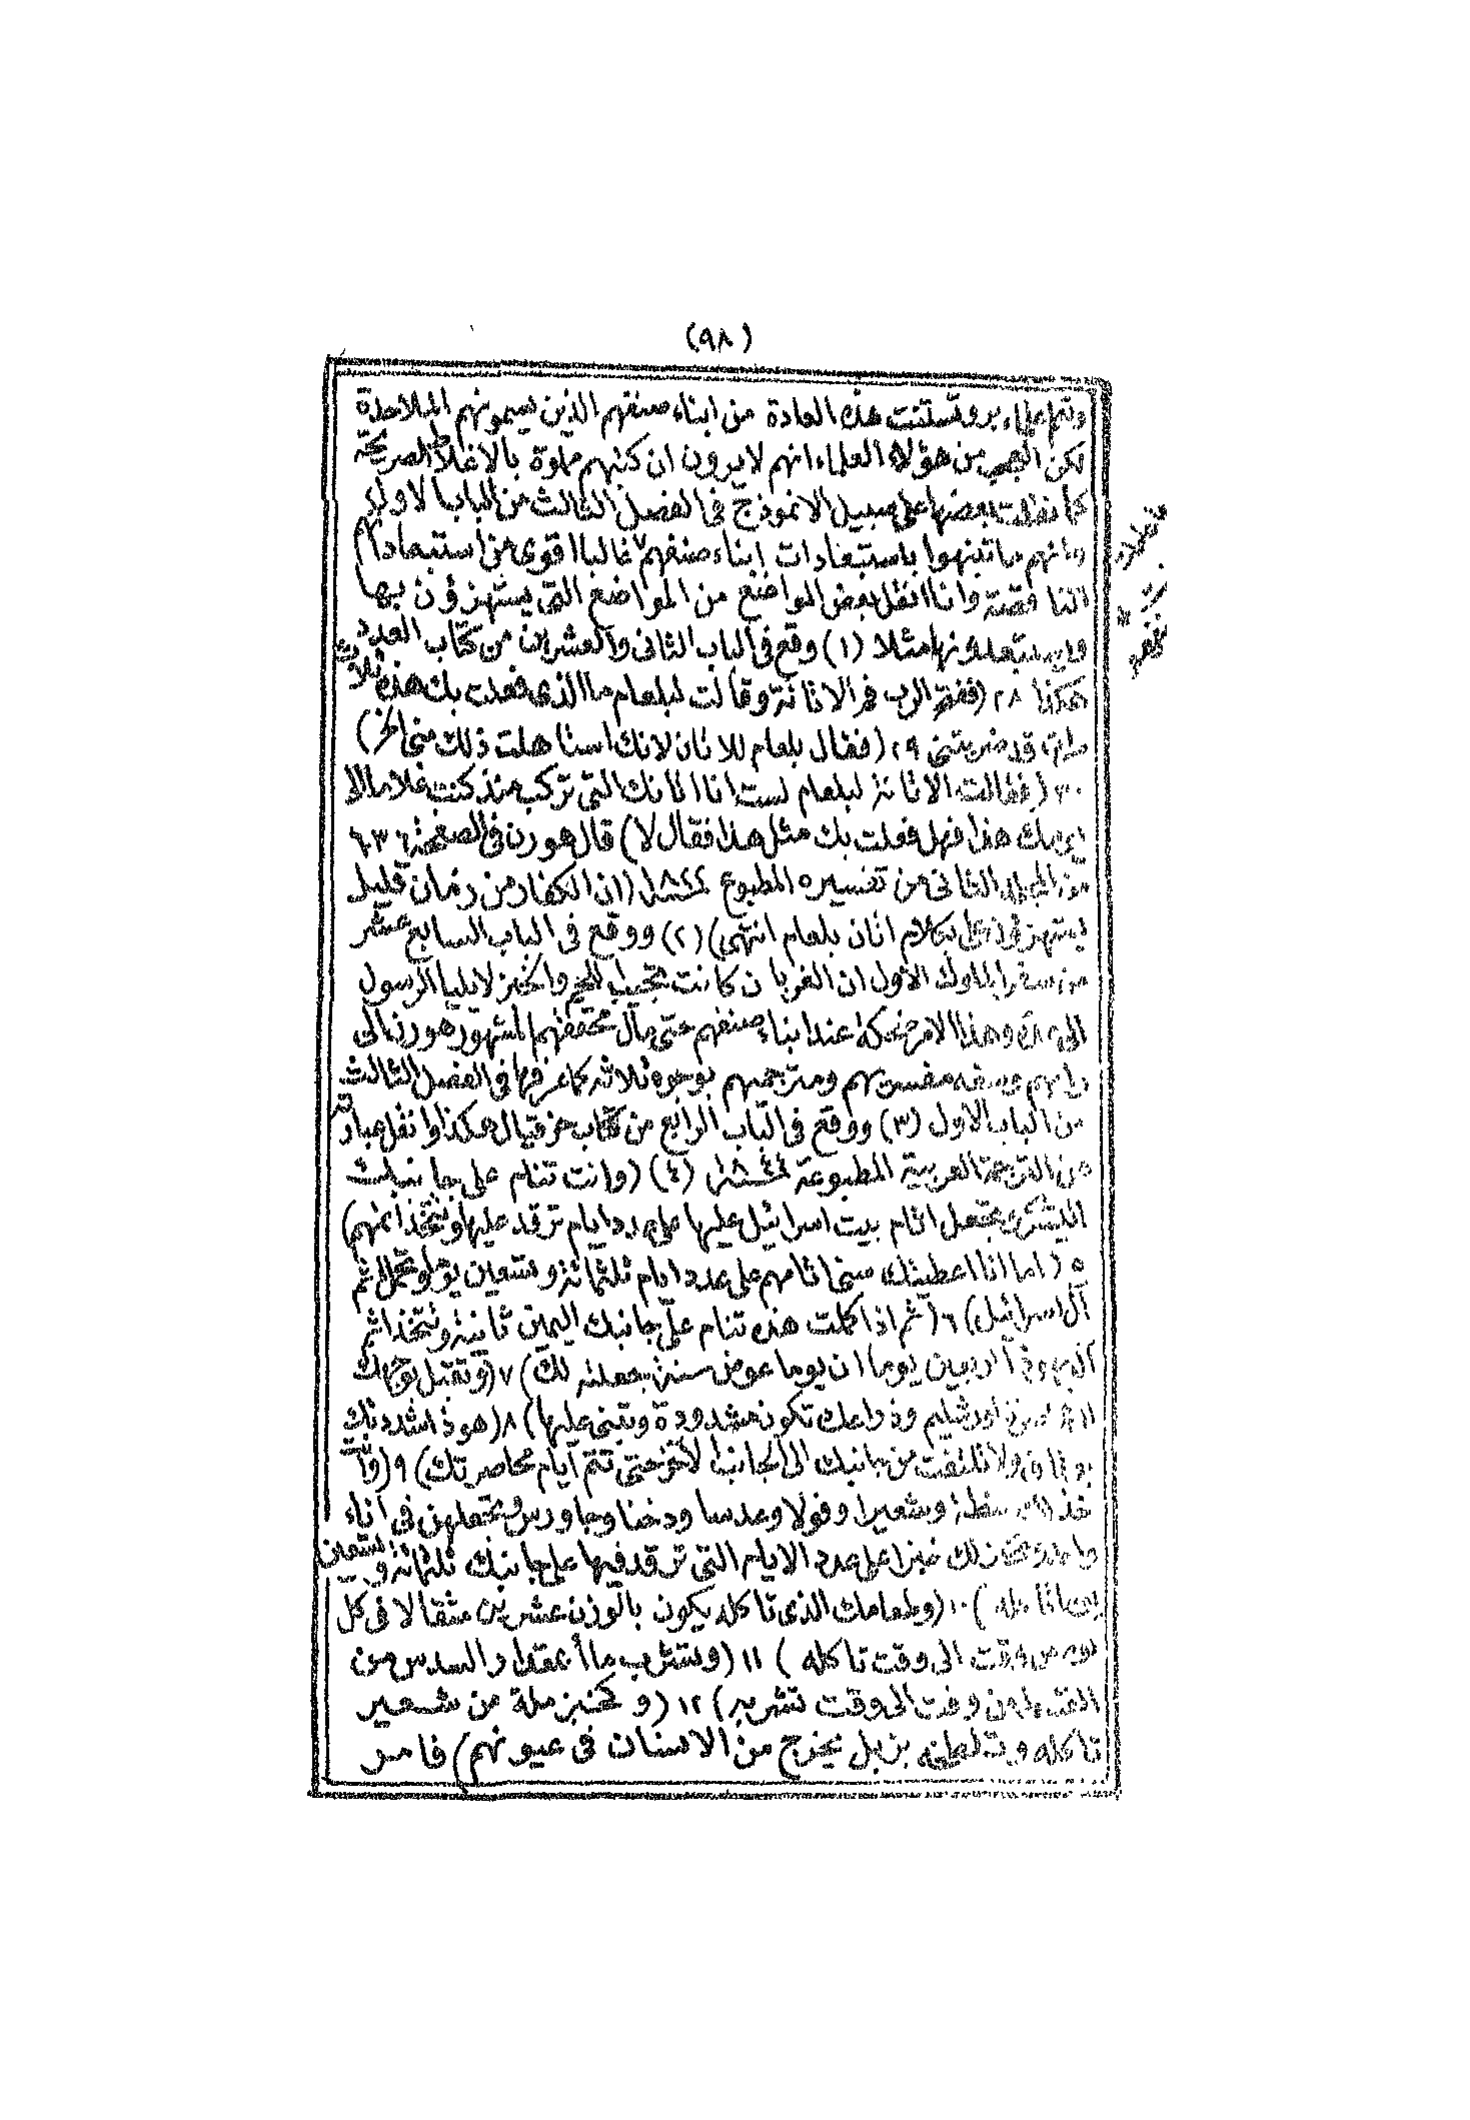 (٩٨)
وتعلم علماء بروتستنت هذه العادة من ابناء صنفهم الذين يسمونهم الملاحدة
لكن العجب من هؤلاء العلماء انهم لا يرون ان كتبهم مملوة بالاغلاط الصريحة
كما نقلت بعضها على سبيل الانموذج فى الفصل الثالث من الباب الاول
وانهم ما تنبهوا باستبعادات ابناء صنفهم غالبا اقوى من استبعاداتهم
الناقصة وانا انقل بعض المواضع من المواضع التى يستهزؤن بها
ويستبعدونها مثلا (١) وقع فى الباب الثانى والعشرين من كتاب العدد
هكذا ٢٨ (ففتح الرب فم الاتانة وقالت لبلعام ما الذى فعلت بك هذه ثلاث
مرات قد ضربتنى ٢٩ (فقال بلعام للاتان لانك استاهلت ذلك منى الخ)
٣٠ (فقالت الاتانة لبلعام لست انا اتانك التى تركب منذ كنت غلاما الى
يومك هذا فهل فعلت بك مثل هذا فقال لا) قال هورن فى الصفحة ٦٣٦
من المجلد الثانى من تفسيره المطبوع ١٨٢٢ (ان الكفار من زمان قليل
يستهزؤن على بكلام اتان بلعام انتهى) (٢) ووقع فى الباب السابع عشر
من سفر الملوك الاول ان الغربان كانت تجيب اللحم والخبز لايليا الرسول
الى وهذا الامر ضحكة عند ابناء صنفهم حتى مال محققهم المشهور هورن الى
رايهم وسفه مفسريهم ومترجميهم بوجوه ثلاثة كما عرفتها فى الفصل الثالث
من الباب الاول (٣) ووقع فى الباب الرابع من كتاب حزقيال هكذا وانقل عبارته
من الترجمة العربية المطبوعة ١٨٤٤ (٤) (وانت تنام على جانبك
اليسرى وتجعل اثام بيت اسرائيل عليها على عدد ايام ترقد عليها وتتخذ اثمهم)
٥ (اما انا اعطيتك سنى اثامهم على عدد ايام ثلثمائة وتسعين يوما وتحمل اثم
آل اسرائيل) ٦ (ثم اذا كملت هذه تنام على جانبك اليمين ثانية وتتخذ اثم
آل يهوذا اربعين يوما ان يوما عوض سنة جعلته لك) ٧ (وتقبل بوجهك
الى اورشليم وذراعك تكون مشدودة وتتبنى عليها) ٨ (هوذا شددتك
بوثاق ولا تلتفت من جانبك الى الجانب الاخر حتى تتم ايام محاصرتك) ٩ (وانت
خذ لك حنطة وشعيرا وفولا وعدسا ودخنا وجاورس وتجعلهن فى اناء
واحد وتخبز لك خبزا على عدد الايام التى ترقد فيها على جانبك ثلثمائة وتسعين
يوما تاكله) ١٠ (وطعامك الذى تاكله يكون بالوزن عشرين مثقالا فى كل
يوم من وقت الى وقت تاكله) ١١ (وتشرب ماأ بمقدار السدس من
القسط من وقت الى وقت تشربه) ١٢ (وكخبز ملة من شعير
تاكله وتلطخه بزبل يخرج من الانسان فى عيونهم) فامر